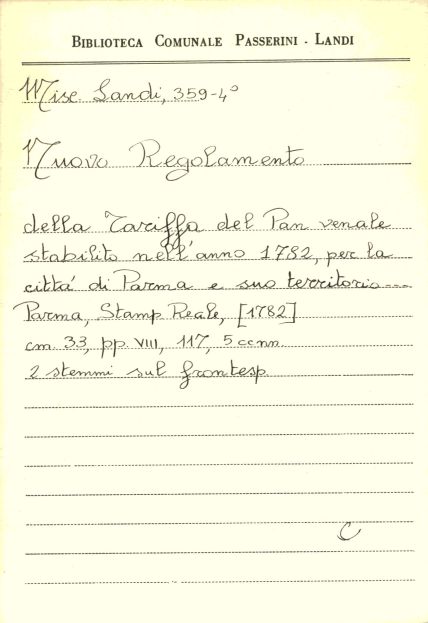 BIBLIOTECA COMUNALE PASSERINI - LANDI
Misc. Landi, 359-4°
Nuovo Regolamento
della Tariffa del Pan venale
stabilito nell'anno 1782, per la
città di Parma e suo territorio ---
Parma, Stamp. Reale, [1782]
cm. 33, pp. VIII, 117, 5 ccnn.
2 stemmi sul frontesp.
C